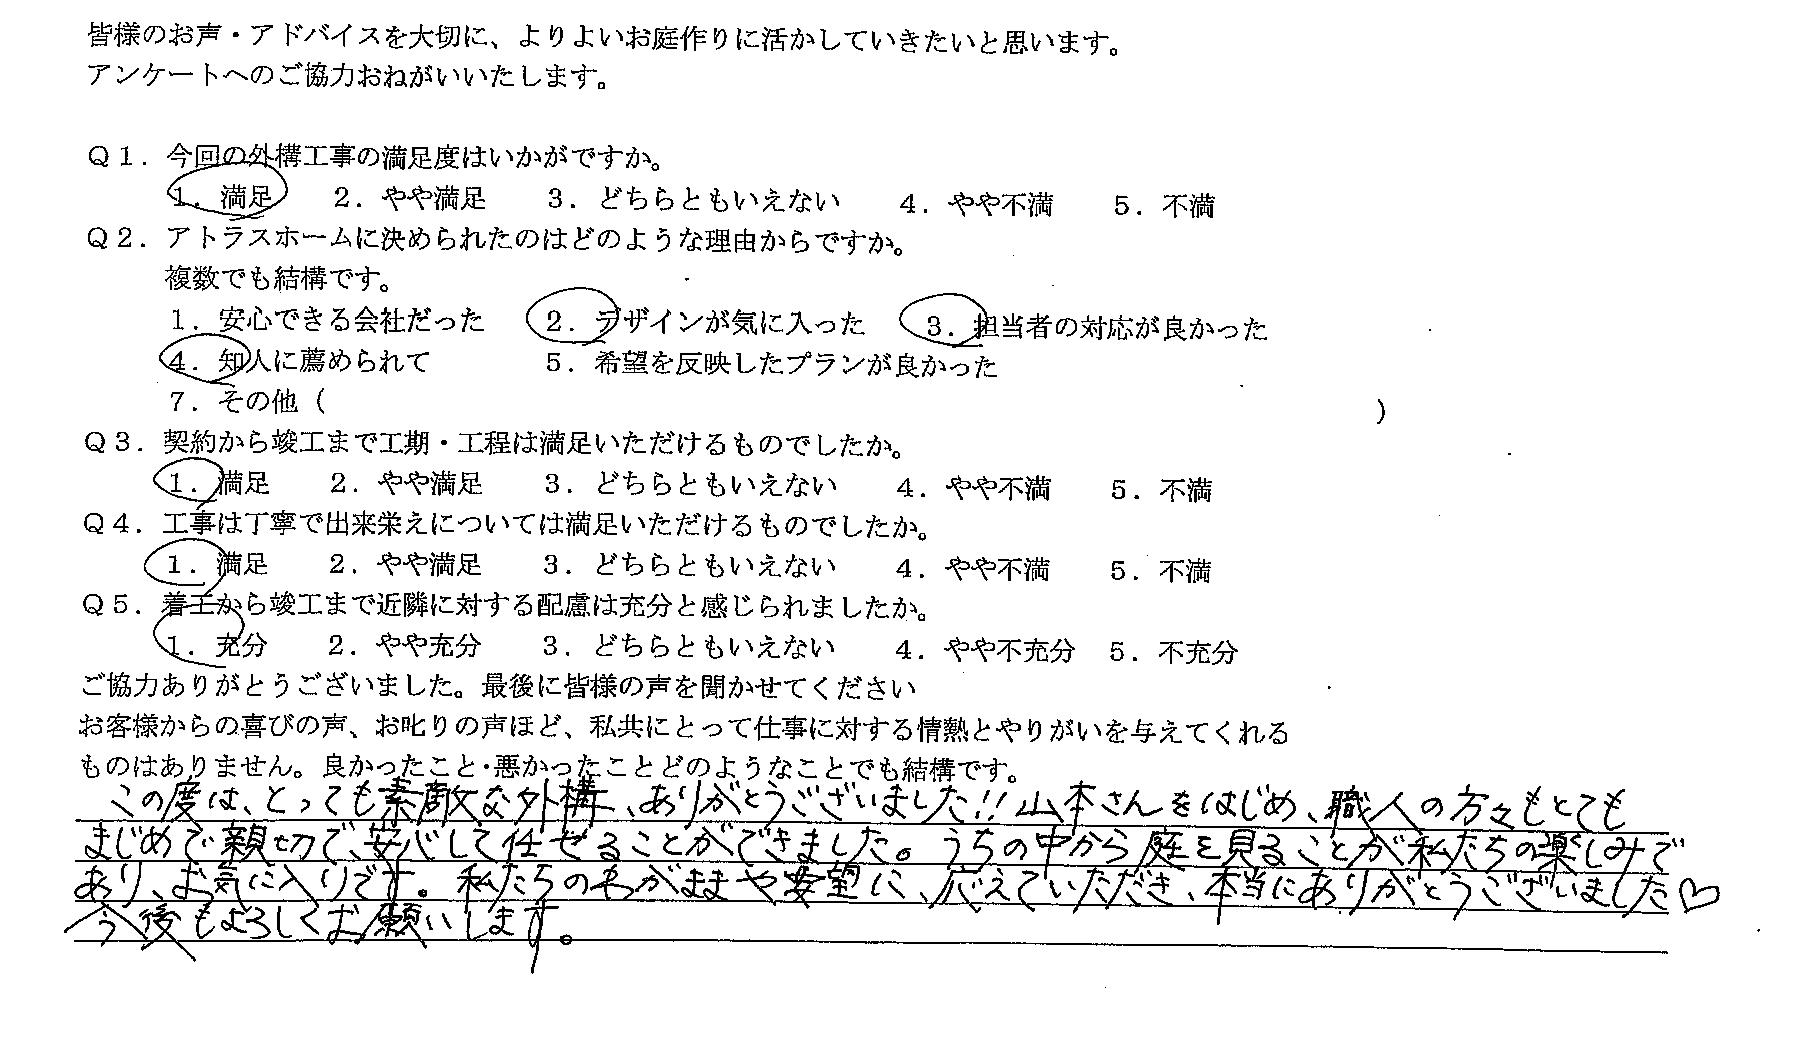 皆様のお声・アドバイスを大切に、よりよいお庭作りに活かしていきたいと思います。
アンケートへのご協力おねがいいたします。
Ｑ１．今回の外構工事の満足度はいかがですか。
１．満足　２．やや満足　３．どちらともいえない　４．やや不満　５．不満
Ｑ２．アトラスホームに決められたのはどのような理由からですか。
複数でも結構です。
１．安心できる会社だった　２．デザインが気に入った　３．担当者の対応が良かった
４．知人に薦められて　５．希望を反映したプランが良かった
７．その他（　　　）
Ｑ３．契約から竣工まで工期・工程は満足いただけるものでしたか。
１．満足　２．やや満足　３．どちらともいえない　４．やや不満　５．不満
Ｑ４．工事は丁寧で出来栄えについては満足いただけるものでしたか。
１．満足　２．やや満足　３．どちらともいえない　４．やや不満　５．不満
Ｑ５．着工から竣工まで近隣に対する配慮は充分と感じられましたか。
１．充分　２．やや充分　３．どちらともいえない　４．やや不充分　５．不充分
ご協力ありがとうございました。最後に皆様の声を聞かせてください
お客様からの喜びの声、お叱りの声ほど、私共にとって仕事に対する情熱とやりがいを与えてくれる
ものはありません。良かったこと・悪かったことどのようなことでも結構です。
この度は、とっても素敵な外構、ありがとうございました!! 山本さんをはじめ、職人の方々もとても
まじめで親切で、安心して任せることができました。うちの中から庭を見ることが私たちの楽しみで
あり、お気に入りです。私たちのわがままや要望に、応えていただき、本当にありがとうございました♡
今後もよろしくお願いします。